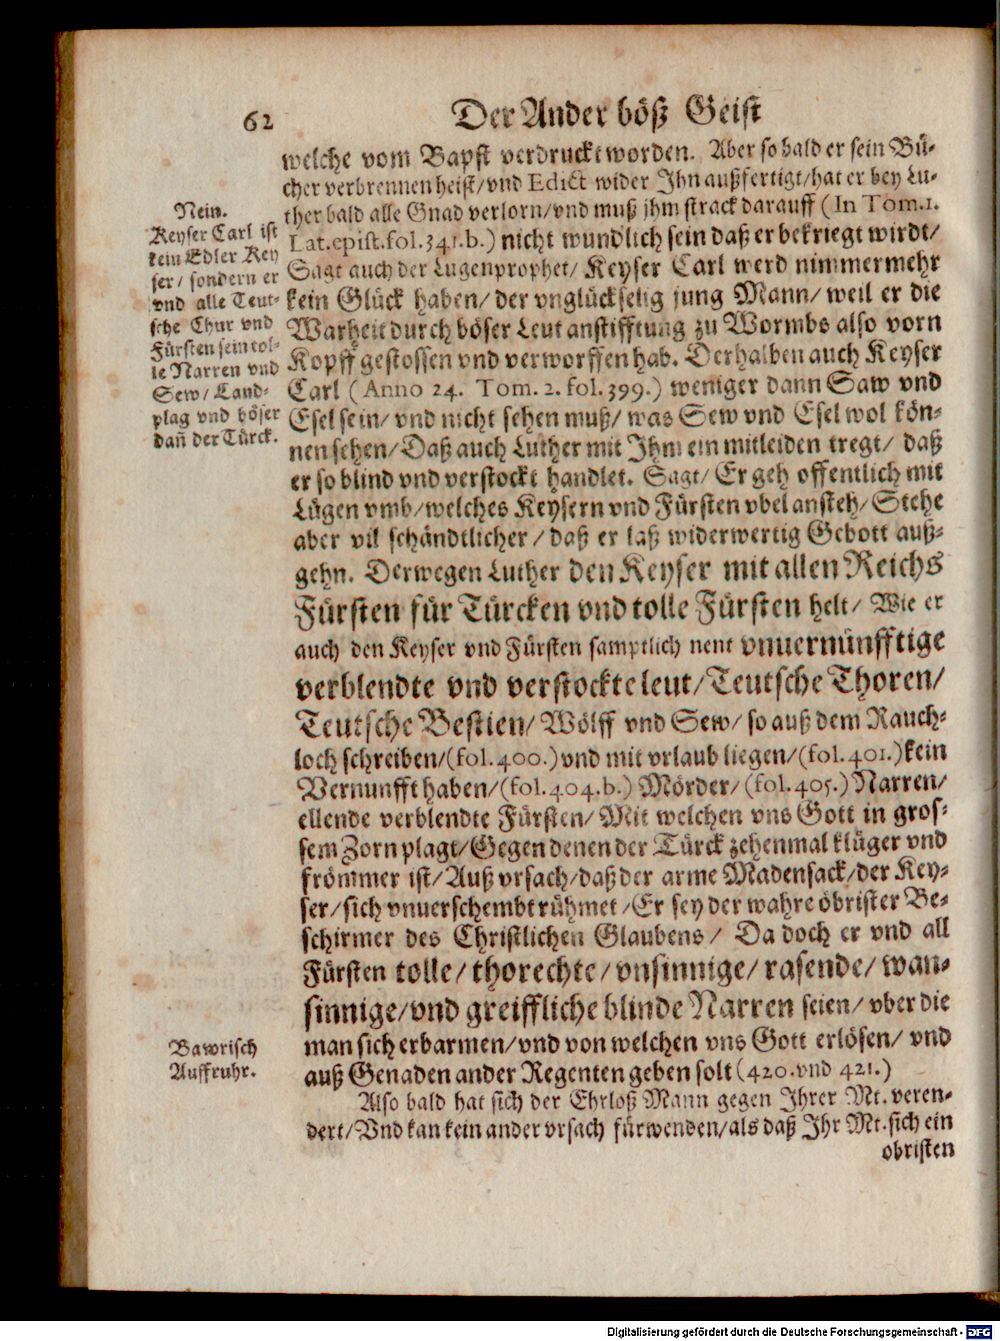 62
Der Ander böß Geist
welche vom Bapst verdruckt worden. Aber so bald er sein Bü-
cher verbrennen heist/ vnd Edict wider Ihn außfertigt/ hat er bey Lu-
ther bald alle Gnad verlorn/ vnd muß jhm strack darauff (In Tom. 1.
Lat. epist. fol. 341. b.) nicht wundlich sein daß er bekriegt wirdt/
Sagt auch der Lugenprophet/ Keyser Carl werd nimmermehr
kein Glück haben/ der vnglückselig jung Mann/ weil er die
Warheit durch böser Leut anstifftung zu Wormbs also vorn
Kopff gestossen vnd verworffen hab. Derhalben auch Keyser
Carl (Anno 24. Tom. 2. fol. 399.) weniger dann Saw vnd
Esel sein/ vnd nicht sehen muß/ was Sew vnd Esel wol kön-
nen sehen/ Daß auch Luther mit Ihm ein mitleiden tregt/ daß
er so blind vnd verstockt handlet. Sagt/ Er geh offentlich mit
Lügen vmb/ welches Keysern vnd Fürsten vbel ansteh/ Stehe
aber vil schändtlicher/ daß er laß widerwertig Gebott auß-
gehn. Derwegen Luther den Keyser mit allen Reichs
Fürsten für Türcken vnd tolle Fürsten helt/ Wie er
auch den Keyser vnd Fürsten samptlich nent vnuernünfftige
verblendte vnd verstockte leut/ Teutsche Thoren/
Teutsche Bestien/ Wölff vnd Sew/ so auß dem Rauch-
loch schreiben/ (fol. 400.) vnd mit vrlaub liegen/ (fol. 401.) kein
Vernunfft haben/ (fol. 404. b.) Mörder/ (fol. 405.) Narren/
ellende verblendte Fürsten/ Mit welchen vns Gott in gros-
sem Zorn plagt/ Gegen denen der Türck zehenmal klüger vnd
frömmer ist/ Auß vrsach/ daß der arme Madensack/ der Key-
ser/ sich vnuerschembt rühmet/ Er sey der wahre öbrister Be-
schirmer des Christlichen Glaubens/ Da doch er vnd all
Fürsten tolle/ thorechte/ vnsinnige/ rasende/ wan-
sinnige/ vnd greiffliche blinde Narren seien/ vber die
man sich erbarmen/ vnd von welchen vns Gott erlösen/ vnd
auß Genaden ander Regenten geben solt (420. vnd 421.)
Also bald hat sich der Ehrloß Mann gegen Ihrer Mt. veren-
dert/ Vnd kan kein ander vrsach fürwenden/ als daß Ihr Mt. sich ein
obristen
Nein.
Keyser Carl ist
kein Edler Key
ser/ sondern er
vnd alle Teut-
sche Chur vnd
Fürsten sein tol-
le Narren vnd
Sew/ Land-
plag vnd böser
dañ der Türck.
Bawrisch
Auffruhr.
Digitalisierung gefördert durch die Deutsche Forschungsgemeinschaft - DFG